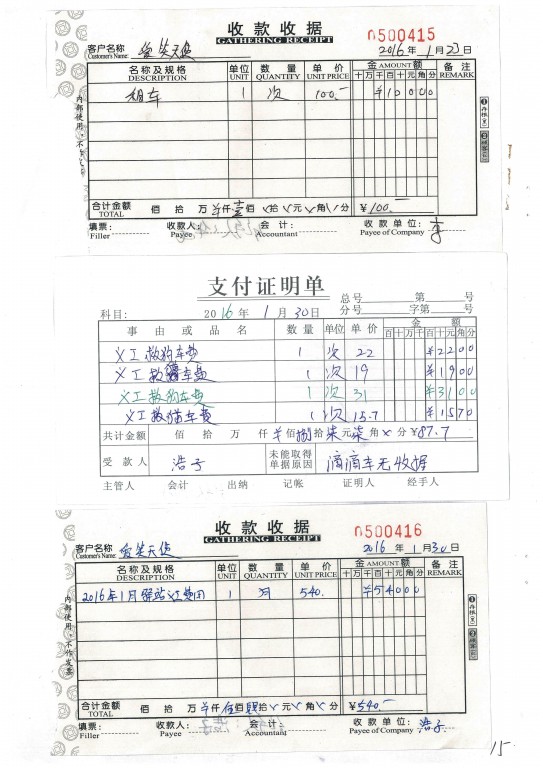 收款收据
GATHERING RECEIPT
0500415
客户名称 爱笑天使
Customer's Name:
2016年1月23日
名称及规格 单位 数量 单价 金 AMOUNT 额 备注
DESCRIPTION UNIT QUANTITY UNIT PRICE 十万千百十元角分 REMARK
租车 1 次 100.- ¥10000
合计金额 佰 拾 万 ¥仟壹佰 拾 元 角 分 ¥100.-
TOTAL
填票: 收款人: 会计: 收款单位: 李
Filler Payee Accountant Payee of Company
内部使用,不作发票
①存根(黑)
②顾客(红)
支付证明单
总号 第 号
科目: 2016年1月30日 分号 字第 号
事由或品名 数量 单位 单价 金额
百十万千百十元角分
义工救狗车费 1 次 22 ¥2200
义工救猫车费 1 次 19 ¥1900
义工救狗车费 1 次 31 ¥3100
义工救猫车费 1 次 15.7 ¥1570
共计金额 佰 拾 万 仟 ¥佰捌拾柒元柒角×分 ¥87.7
受款人 浩子 未能取得单据原因 滴滴车无收据
主管人 会计 出纳 记帐 证明人 经手人
收款收据
GATHERING RECEIPT
0500416
客户名称 爱笑天使
Customer's Name:
2016年1月30日
名称及规格 单位 数量 单价 金 AMOUNT 额 备注
DESCRIPTION UNIT QUANTITY UNIT PRICE 十万千百十元角分 REMARK
2016年1月驿站话费用 1 月 540. ¥54000
合计金额 佰 拾 万 ¥仟伍佰肆拾 元 角 分 ¥540.-
TOTAL
填票: 收款人: 会计: 收款单位: 浩子
Filler Payee Accountant Payee of Company
内部使用,不作发票
①存根(黑)
②顾客(红)
15